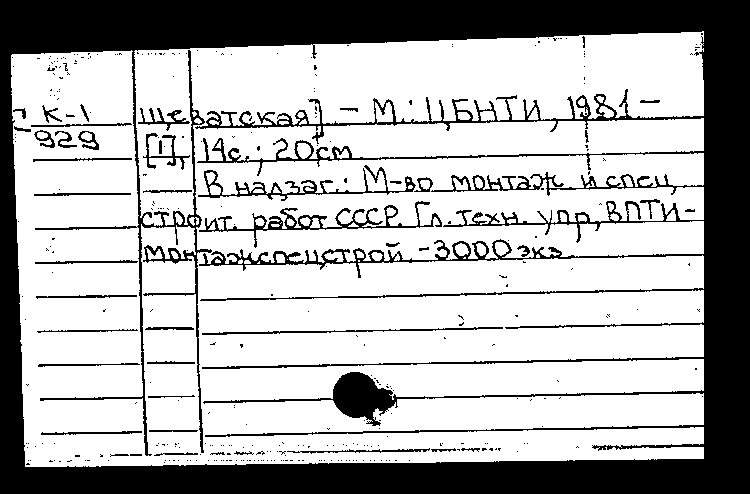 К-1 щеватская] - М.: ЦБНТИ, 1981-
929 [1], 14с.; 20см
В надзаг.: М-во монтаж. и спец.
строит. работ СССР. Гл. техн. упр, ВПТИ-
монтажспецстрой. -3000 экз.